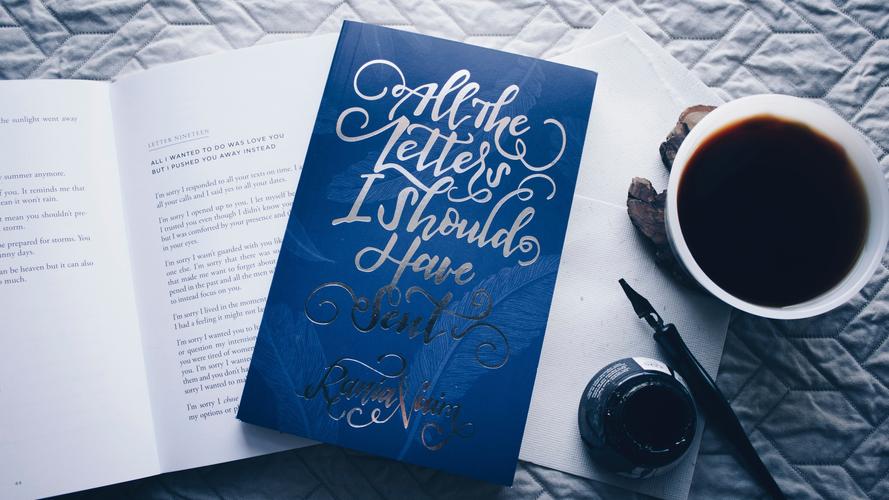 he sunlight went away
y summer anymore.
f you. It reminds me that
ean it won't rain.
t mean you shouldn't pre-
storm.
e prepared for storms. You
nny days.
an be heaven but it can also
o much.
44
LETTER NINETEEN
ALL I WANTED TO DO WAS LOVE YOU
BUT I PUSHED YOU AWAY INSTEAD
I'm sorry I responded to all your texts on time. I a
all your calls and I said yes to all your dates.
I'm sorry I opened up to you. I let myself be
I trusted you even though I didn't know you
but I was comforted by your presence and
in your eyes.
I'm sorry I wasn't guarded with you lik
one else. I'm sorry that there was so
that made me want to forget about
pened in the past and all the men w
to instead focus on you.
I'm sorry I lived in the moment
I had a feeling it might not la
I'm sorry I wanted you to h
or question my intention
you were tired of women
you. I'm sorry I wanted
them and you don't ha
sorry I wanted to ma
I'm sorry I chose
my options or p
All the
Letters
I Should
Have
Sent
Rania Naim